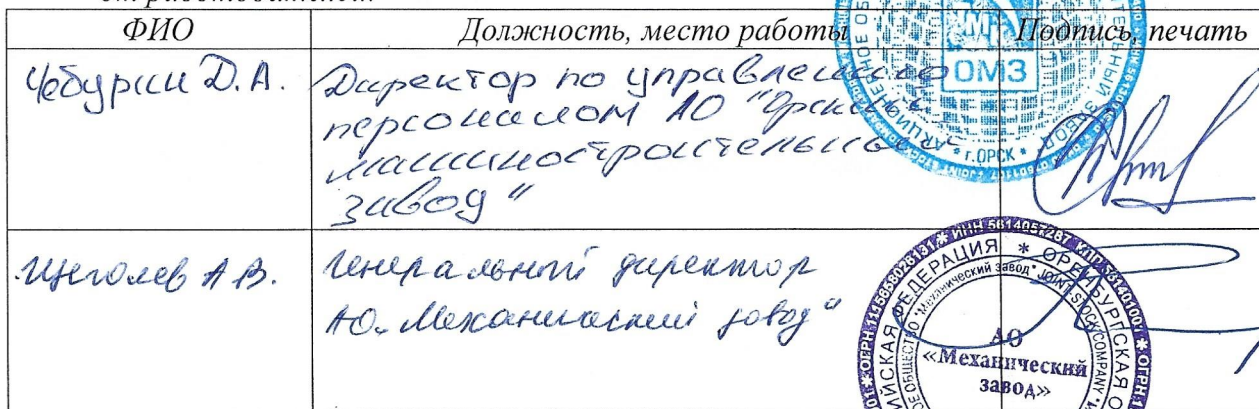 от работодателей
ФИО Должность, место работы Подпись, печать
Чебурин Д.А. Директор по управлению
персоналом АО "Орский
машиностроительный
завод"
ОМЗ
г.ОРСК
Щеголев А.В. Генеральный директор
АО "Механический завод"
АО
«Механический
завод»